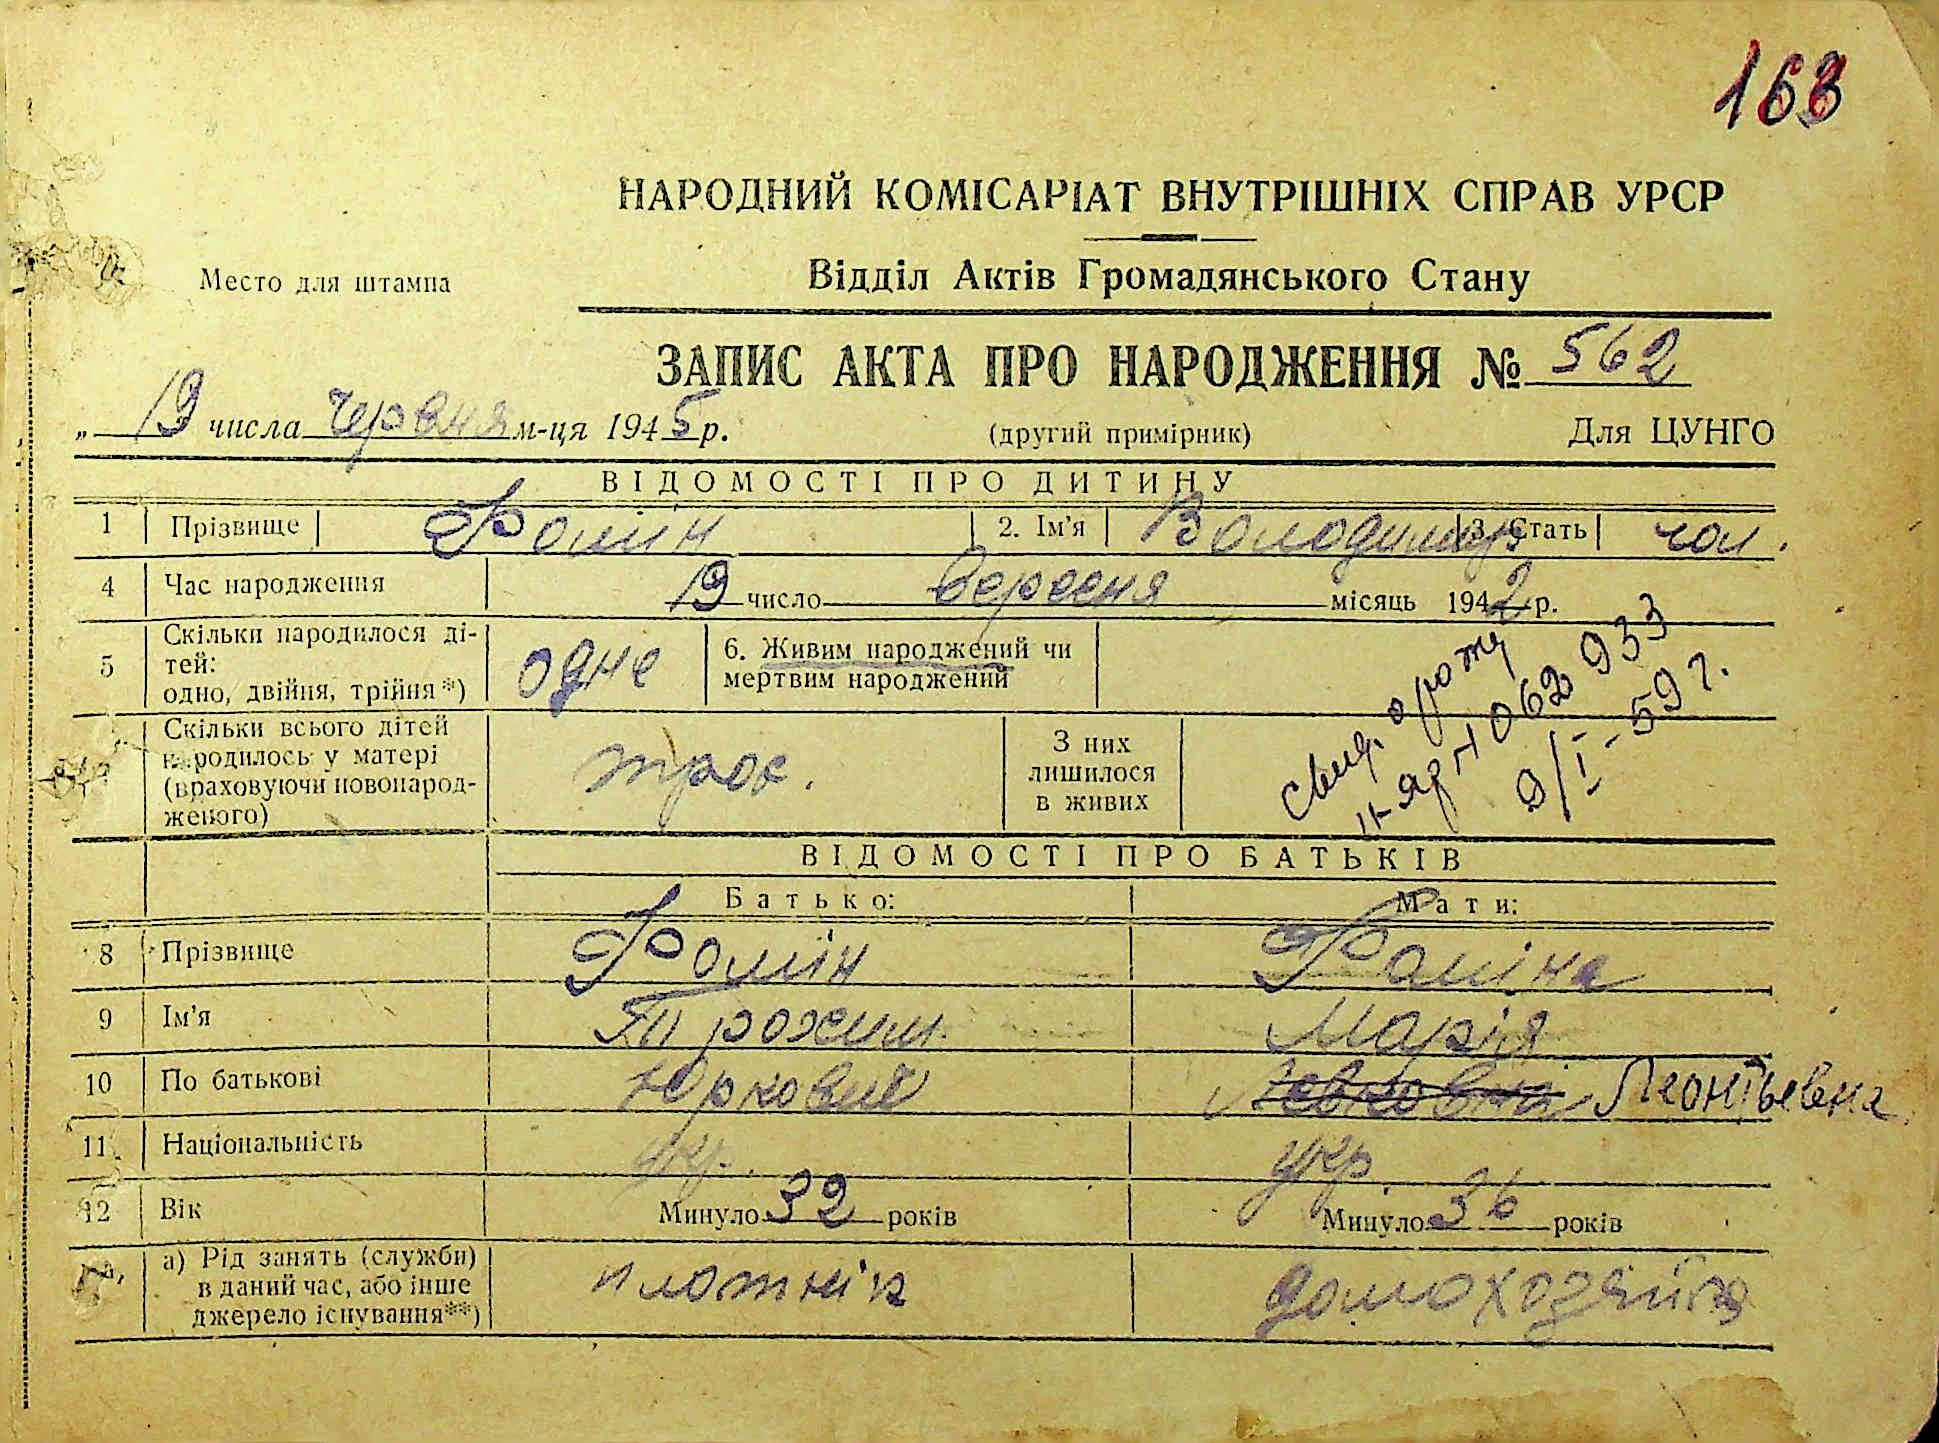 163
НАРОДНИЙ КОМІСАРІАТ ВНУТРІШНІХ СПРАВ УРСР
Відділ Актів Громадянського Стану
Место для штампа
ЗАПИС АКТА ПРО НАРОДЖЕННЯ № 562
„ 19 числа червня м-ця 1945 р. (другий примірник) Для ЦУНГО
ВІДОМОСТІ ПРО ДИТИНУ
1 Прізвище Фомін 2. Ім'я Володимир 3. Стать чол.
4 Час народження 19 число вересня місяць 1942 р.
5 Скільки народилося ді-
тей:
одно, двійня, трійня*) одне 6. Живим народжений чи
мертвим народжений
Скільки всього дітей
народилось у матері
(враховуючи новонарод-
женого) троє. З них
лишилося
в живих
9/I-59 г.
ВІДОМОСТІ ПРО БАТЬКІВ
Батько: Мати:
8 Прізвище Фомін Фоміна
9 Ім'я Трохим. Марія
10 По батькові Юркович Левковна Леонтьевна
11. Національність укр. укр.
12 Вік Минуло 32 років Минуло 36 років
а) Рід занять (служби)
в даний час, або інше
джерело існування**) плотнік домохозяйка